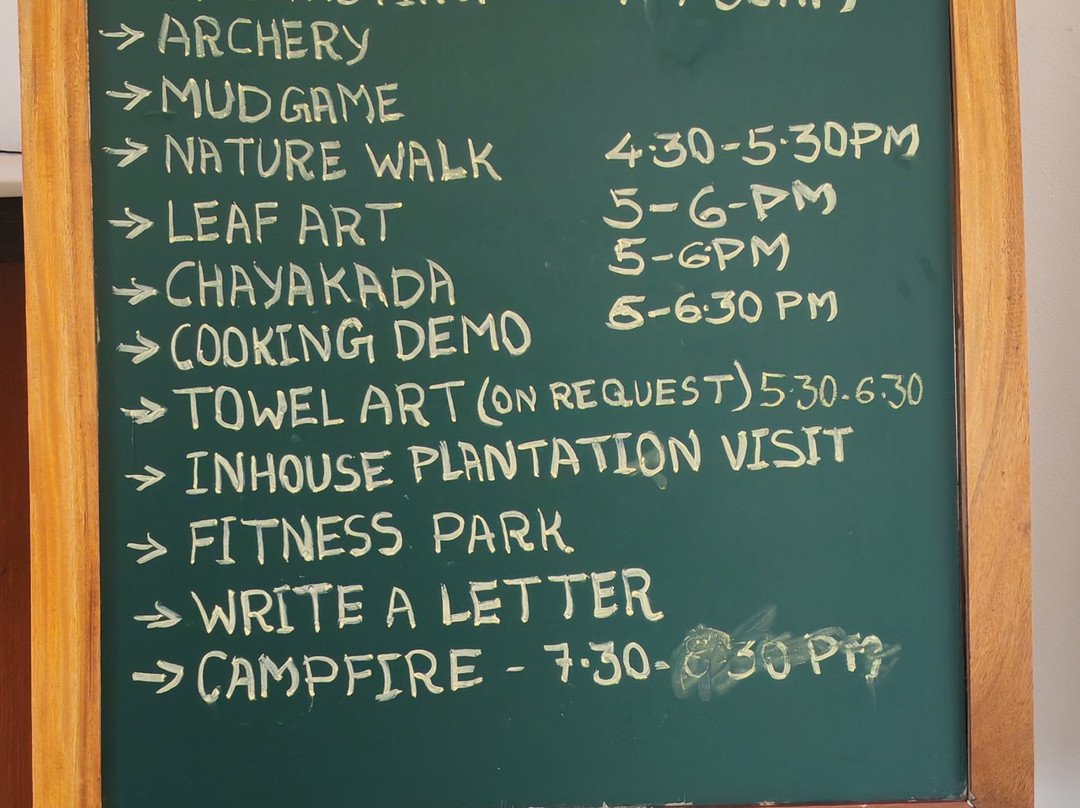 → ARCHERY
→ MUD GAME
→ NATURE WALK 4.30-5.30PM
→ LEAF ART 5-6-PM
→ CHAYAKADA 5-6PM
→ COOKING DEMO 6-6.30 PM
→ TOWEL ART (ON REQUEST) 5.30.-6.30
→ INHOUSE PLANTATION VISIT
→ FITNESS PARK
→ WRITE A LETTER
→ CAMPFIRE - 7.30- 30 PM